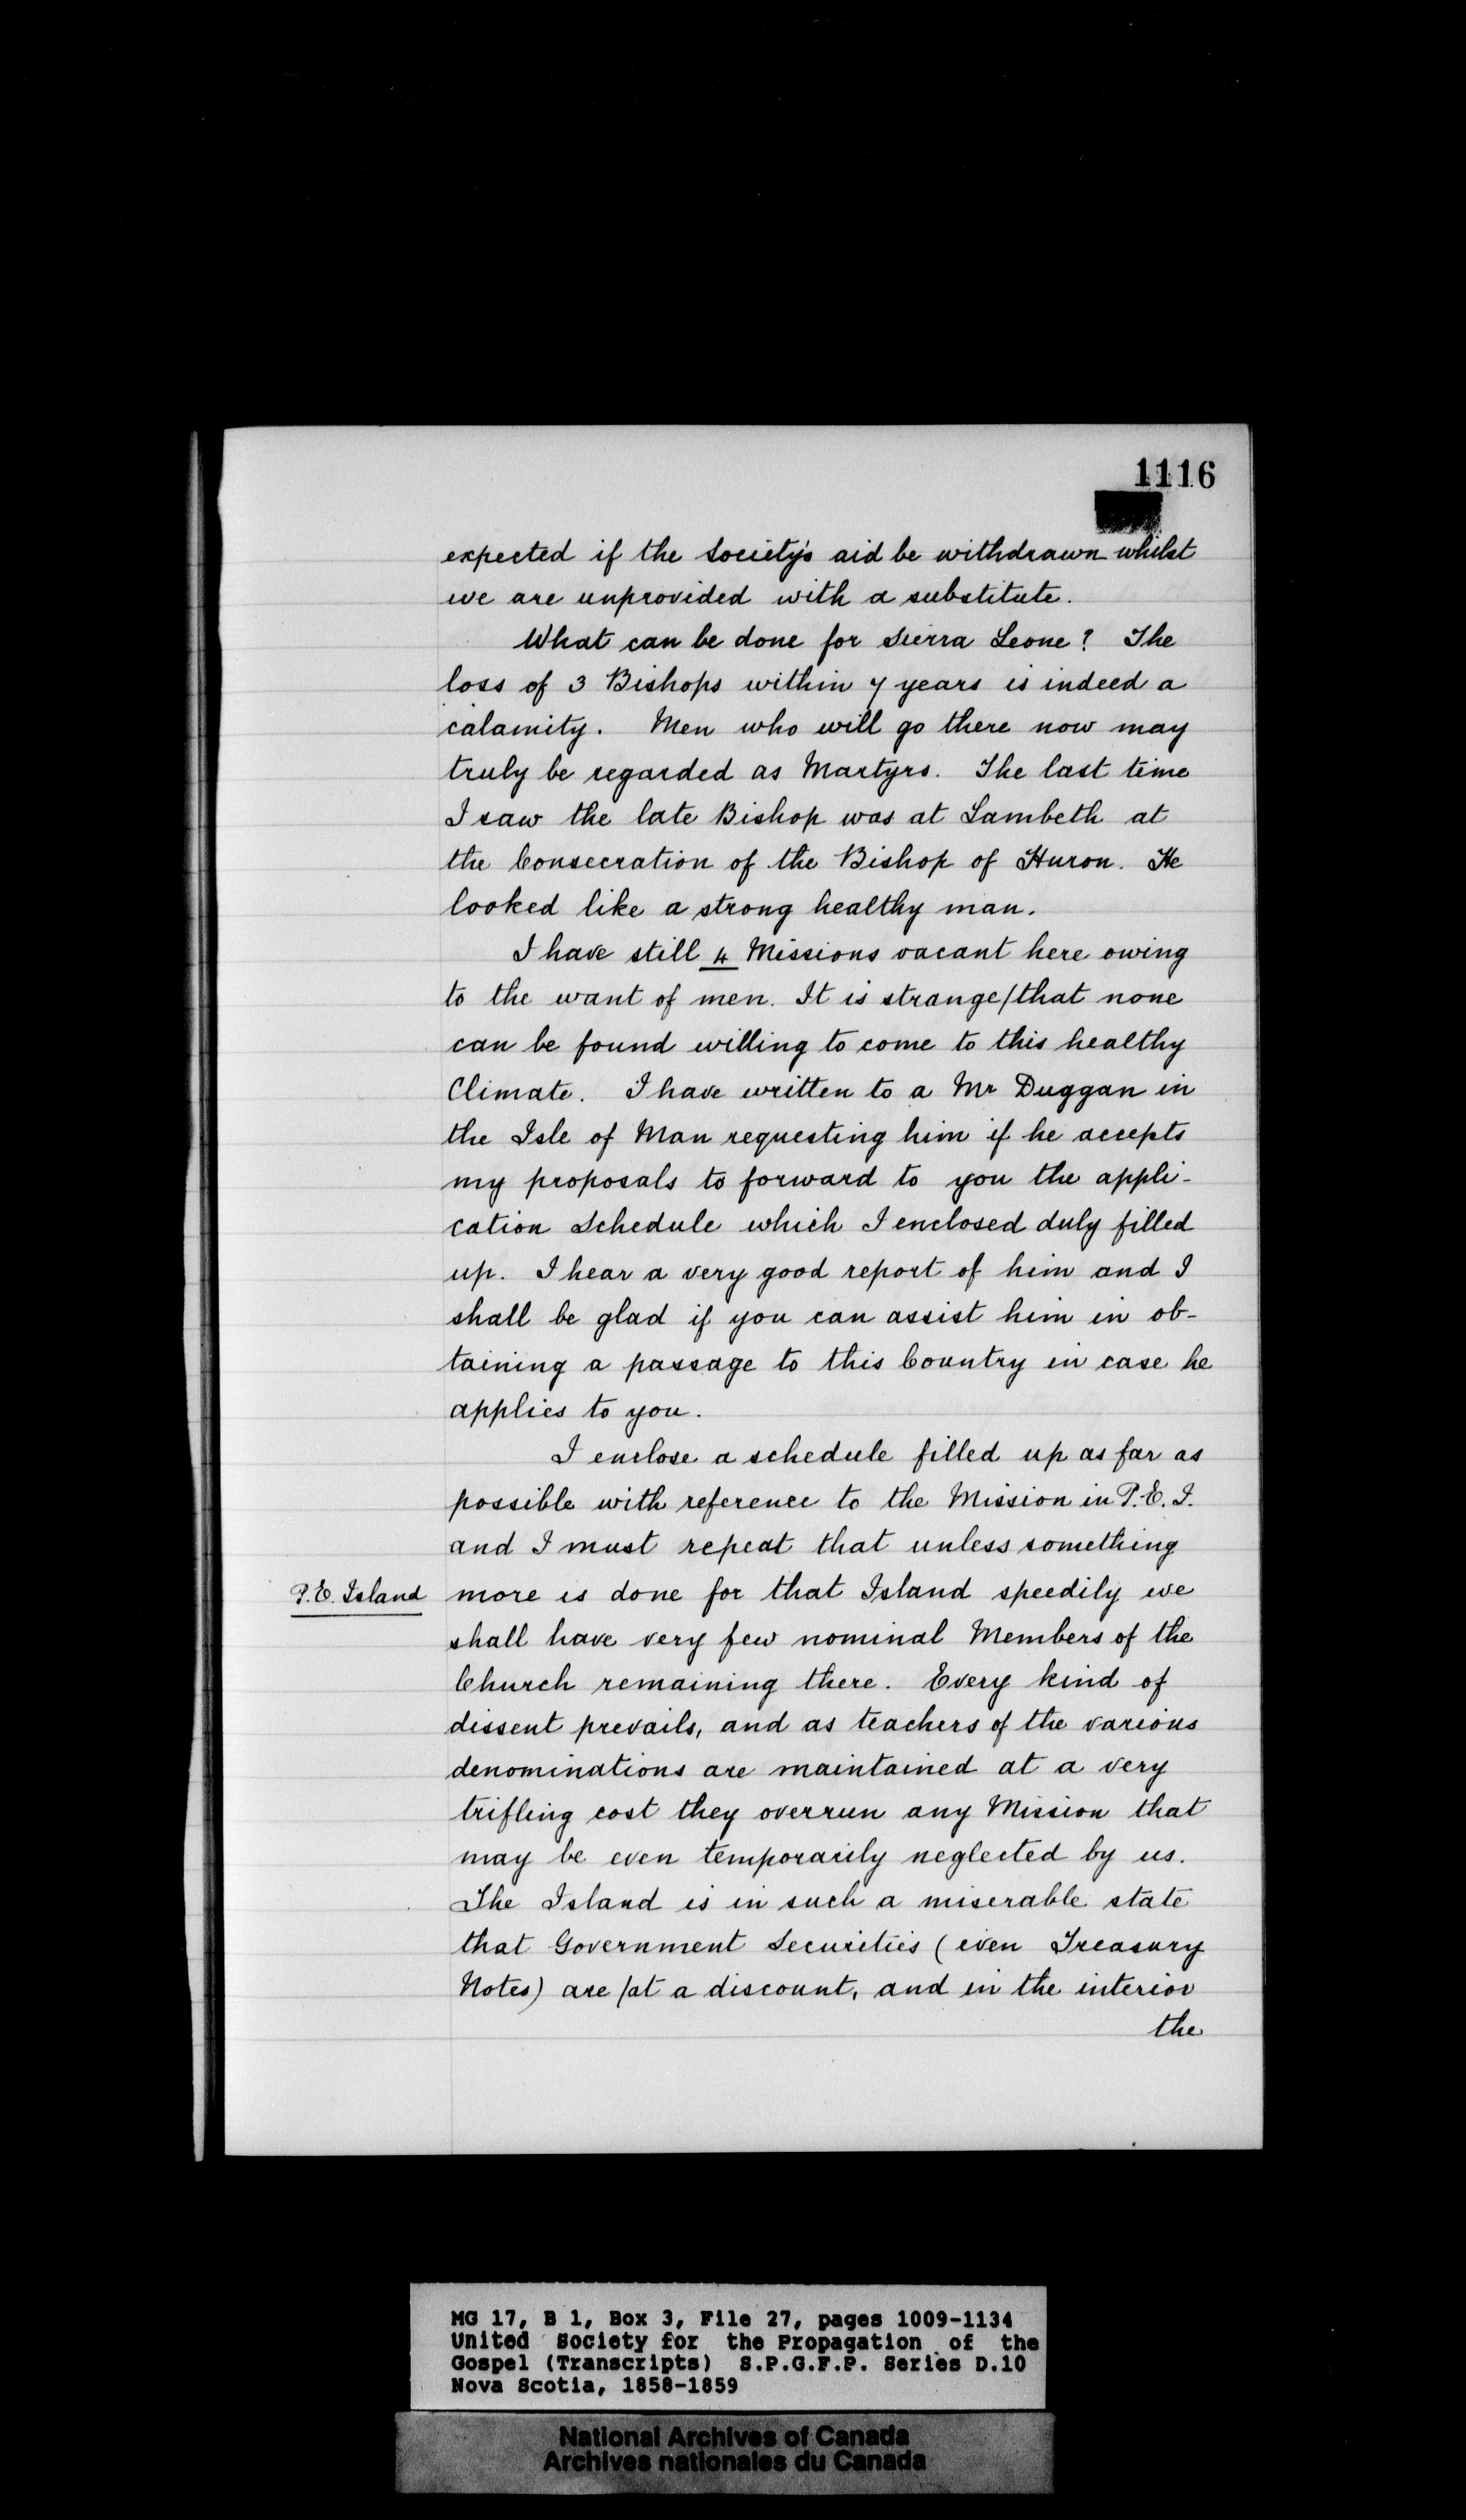 1116
expected if the Society's aid be withdrawn whilst
we are unprovided with a substitute.
What can be done for Sierra Leone? The
loss of 3 Bishops within 7 years is indeed a
calamity. Men who will go there now may
truly be regarded as Martyrs. The last time
I saw the late Bishop was at Lambeth at
the Consecration of the Bishop of Huron. He
looked like a strong healthy man.
I have still 4 Missions vacant here owing
to the want of men. It is strange/that none
can be found willing to come to this healthy
Climate. I have written to a Mr Duggan in
the Isle of Man requesting him if he accepts
my proposals to forward to you the appli-
cation Schedule which I enclosed duly filled
up. I hear a very good report of him and I
shall be glad if you can assist him in ob-
taining a passage to this Country in case he
applies to you.
I enclose a schedule filled up as far as
possible with reference to the Mission in P.E.I.
and I must repeat that unless something
P.E. Island more is done for that Island speedily we
shall have very few nominal Members of the
Church remaining there. Every kind of
dissent prevails, and as teachers of the various
denominations are maintained at a very
trifling cost they overrun any Mission that
may be even temporarily neglected by us.
The Island is in such a miserable state
that Government Securities (even Treasury
Notes) are/at a discount, and in the interior
the
MG 17, B 1, Box 3, File 27, pages 1009-1134
United Society for the Propagation of the
Gospel (Transcripts) S.P.G.F.P. Series D.10
Nova Scotia, 1858-1859
National Archives of Canada
Archives nationales du Canada